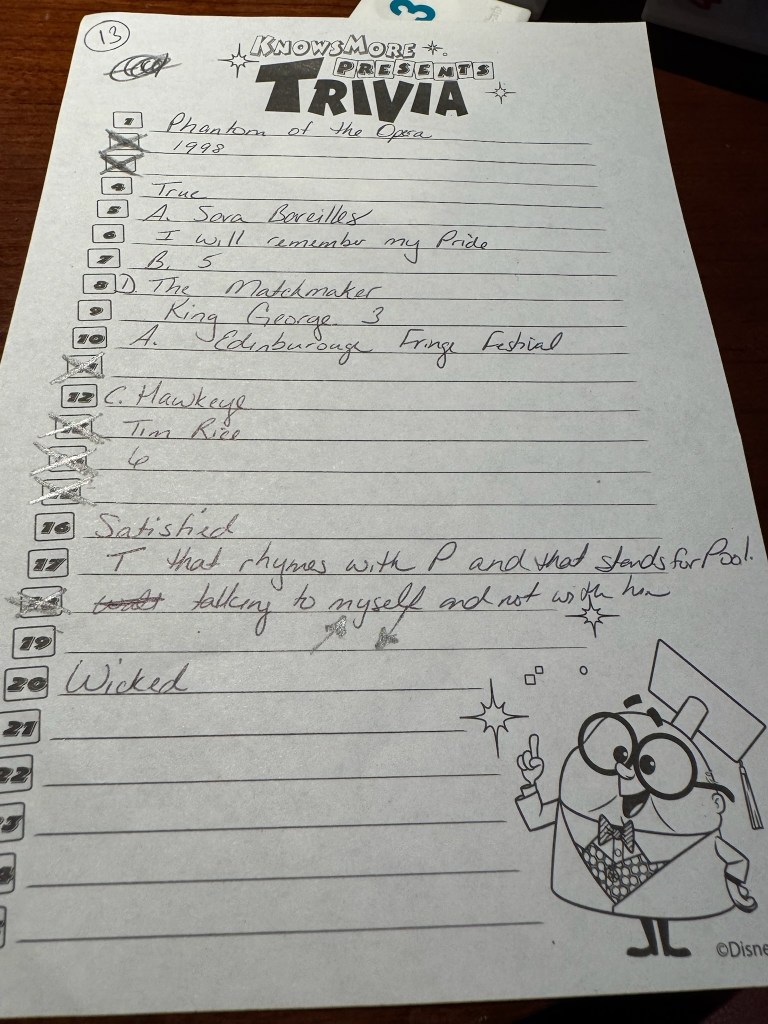 13
KNOWSMORE
PRESENTS
TRIVIA
1 Phantom of the Opera
1998
4 True
5 A. Sara Bareilles
6 I will remember my Pride
7 B. 5
8 D. The Matchmaker
9 King George 3
10 A. Edinburough Fringe Festival
12 C. Hawkeye
Tim Rice
6
16 Satisfied
17 T that rhymes with P and that stands for Pool.
talking to myself and not with him
19
20 Wicked
21
22
3
©Disne